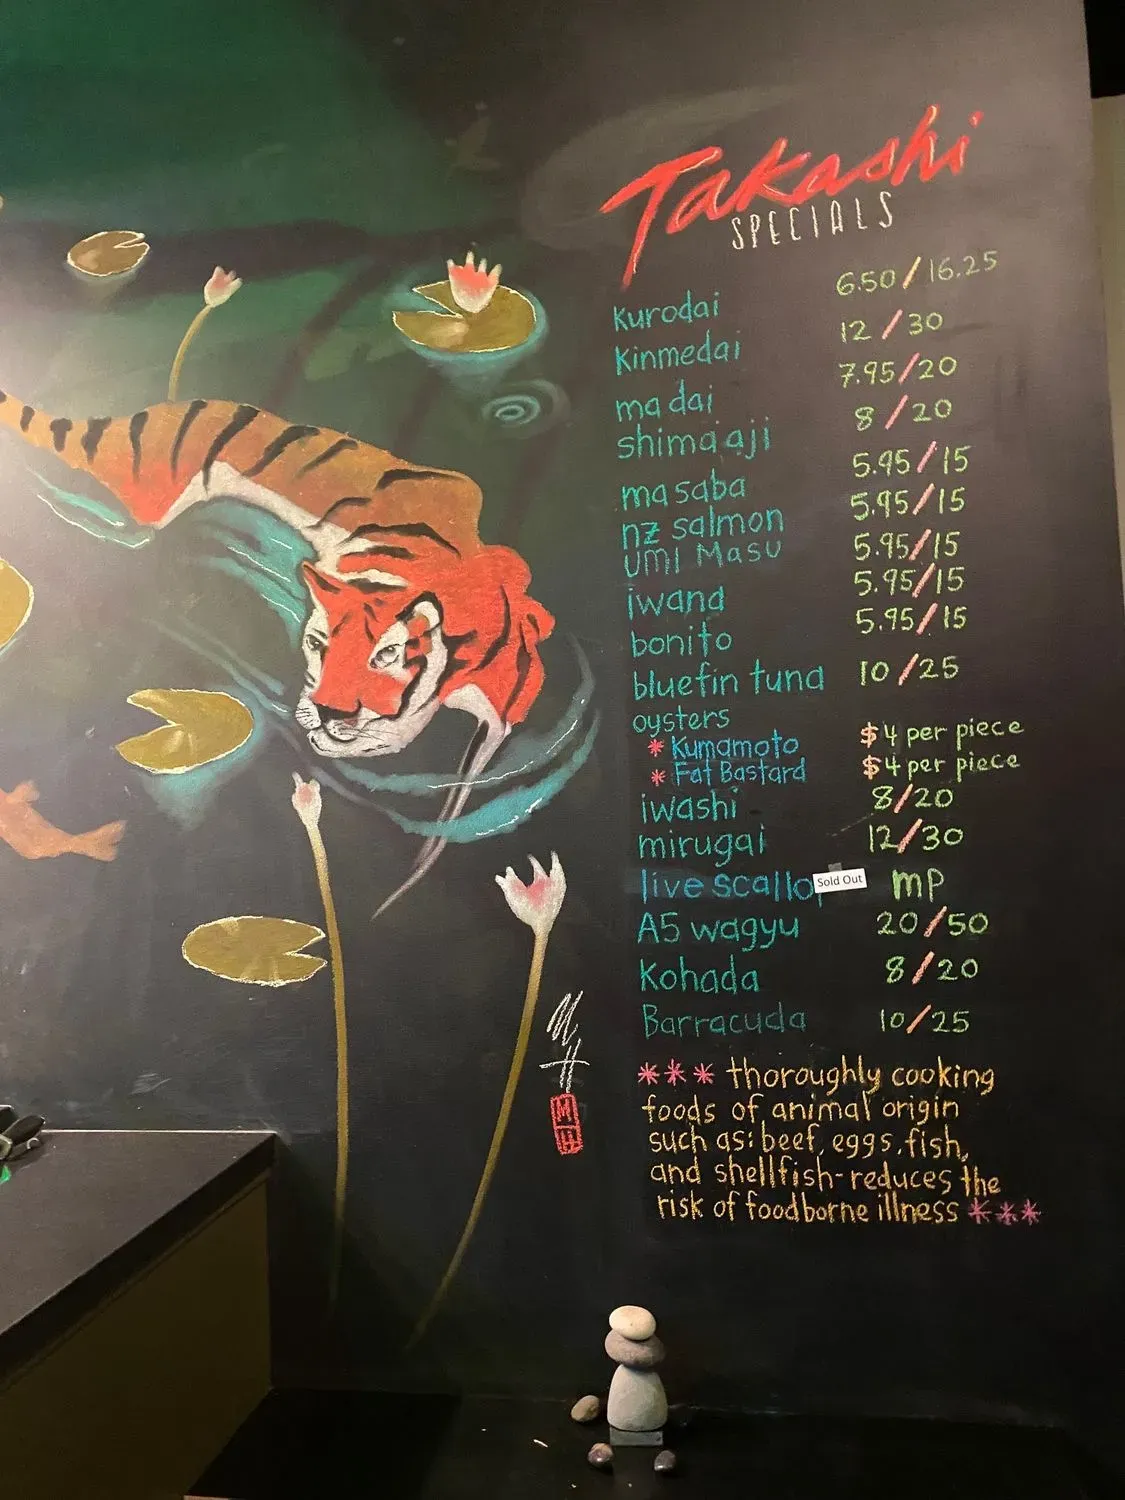 Takashi
SPECIALS
kurodai 6.50/16.25
kinmedai 12/30
madai 7.95/20
shima aji 8/20
masaba 5.95/15
nz salmon 5.95/15
umi Masu 5.95/15
iwana 5.95/15
bonito 5.95/15
bluefin tuna 10/25
oysters
* Kumamoto $4 per piece
* Fat Bastard $4 per piece
iwashi 8/20
mirugai 12/30
live scallo Sold Out MP
A5 wagyu 20/50
Kohada 8/20
Barracuda 10/25
*** thoroughly cooking
foods of animal origin
such as: beef, eggs, fish,
and shellfish-reduces the
risk of foodborne illness ***
MH